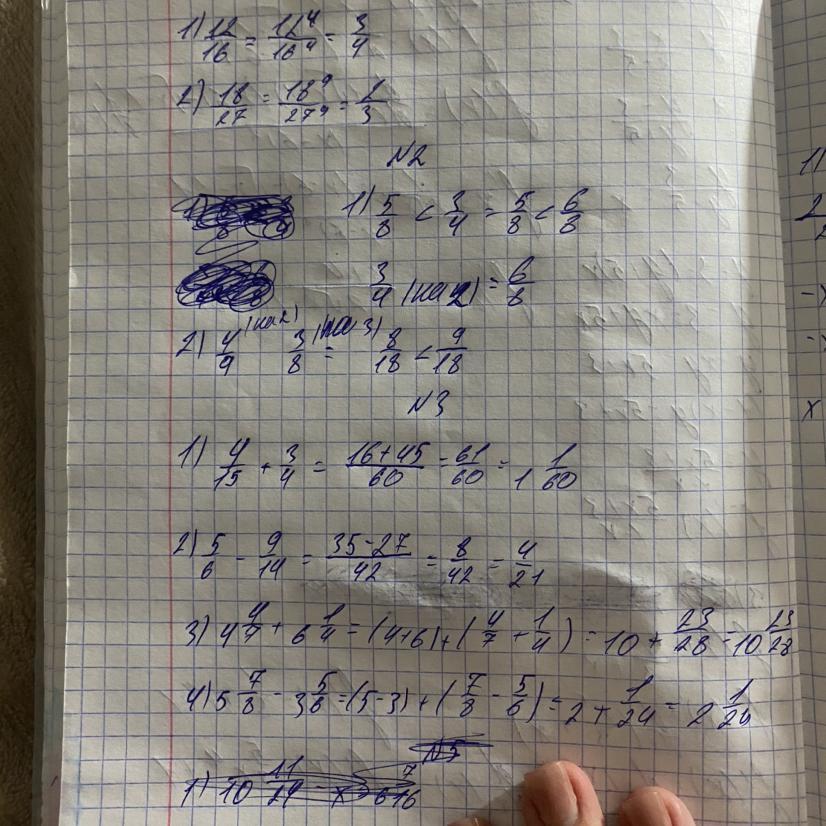 1) 12/16 = 12^4/16^4 = 3/4
2) 18/27 = 18^9/27^9 = 1/3
N2
1) 5/8 < 3/4 = 5/8 < 6/8
3/4 (на 2) = 6/8
2) 4/9 (на 2) 3/8 (на 3) = 8/18 < 9/18
N3
1) 4/15 + 3/4 = (16+45)/60 = 61/60 = 1 1/60
2) 5/6 - 9/14 = (35-27)/42 = 8/42 = 4/21
3) 4 4/7 + 6 1/4 = (4+6) + (4/7 + 1/4) = 10 + 23/28 = 10 23/28
4) 5 7/8 - 3 5/6 = (5-3) + (7/8 - 5/6) = 2 + 1/24 = 2 1/24
N3
1) 10 11/24 - x = 6 7/16
1)
2
-x
x